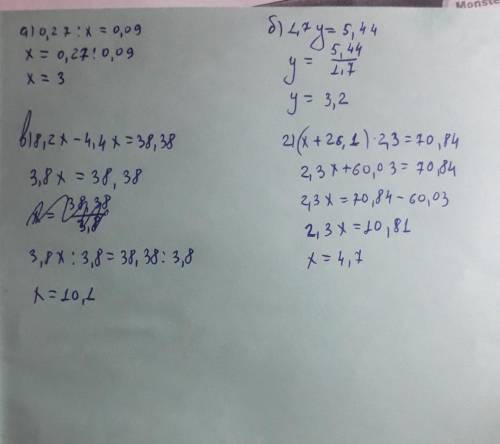 Monste
а) 0,27 : x = 0,09
x = 0,27 : 0,09
x = 3
б) 1,7 y = 5,44
y = 5,44 / 1,7
y = 3,2
в) 8,2x - 4,4x = 38,38
3,8x = 38,38
x = 38,38 / 3,8
3,8x : 3,8 = 38,38 : 3,8
x = 10,1
г) (x + 26,1) · 2,3 = 70,84
2,3x + 60,03 = 70,84
2,3x = 70,84 - 60,03
2,3x = 10,81
x = 4,7